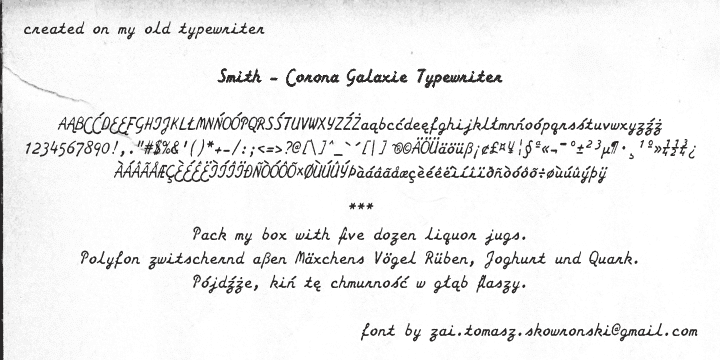 created on my old typewriter
Smith - Corona Galaxie Typewriter
AĄBCĆDEĘFGHIJKLŁMNŃOÓPQRSŚTUVWXYZŹŻaąbcćdeęfghijklłmnńoópqrsśtuvwxyzźż
1234567890!,."#$%&'()*+-/:;<=>?@[\]^_`´{|}~®©ÄÖÜäöüß¡¢£¤¥¦§ª«¬¯°±²³µ¶·¸¹º»¼½¾¿
ÀÁÂÃÅÆÇÈÉÊËÌÍÎÏÐÑÒÓÔÕ×ØÙÚÛÝÞàáâãåæçèéêëìíîïðñòóôõ÷øùúûýþÿ
***
Pack my box with five dozen liquor jugs.
Polyfon zwitschernd aßen Mäxchens Vögel Rüben, Joghurt und Quark.
Pójdźże, kiń tę chmurność w głąb flaszy.
font by zai.tomasz.skowronski@gmail.com